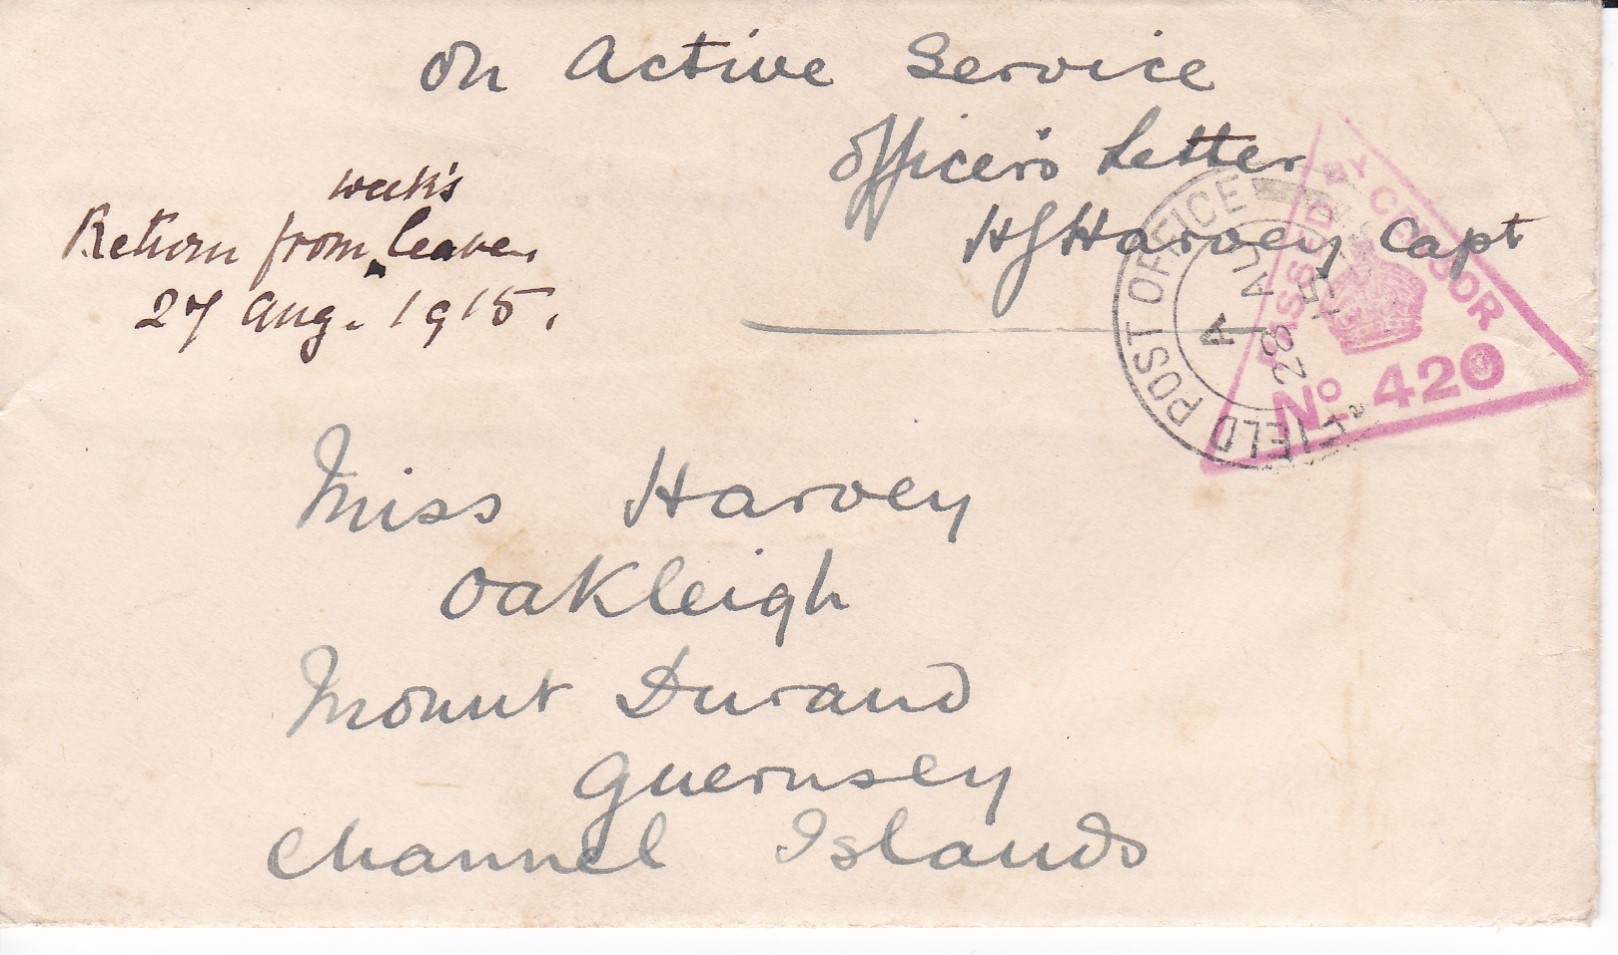 On Active Service
Officer's Letter
HJHarvey Capt
week's
Return from leave.
27 Aug. 1915.
FIELD POST OFFICE
A
28
15
PASSED BY CENSOR
No 420
Miss Harvey
Oakleigh
Mount Durand
Guernsey
Channel Islands